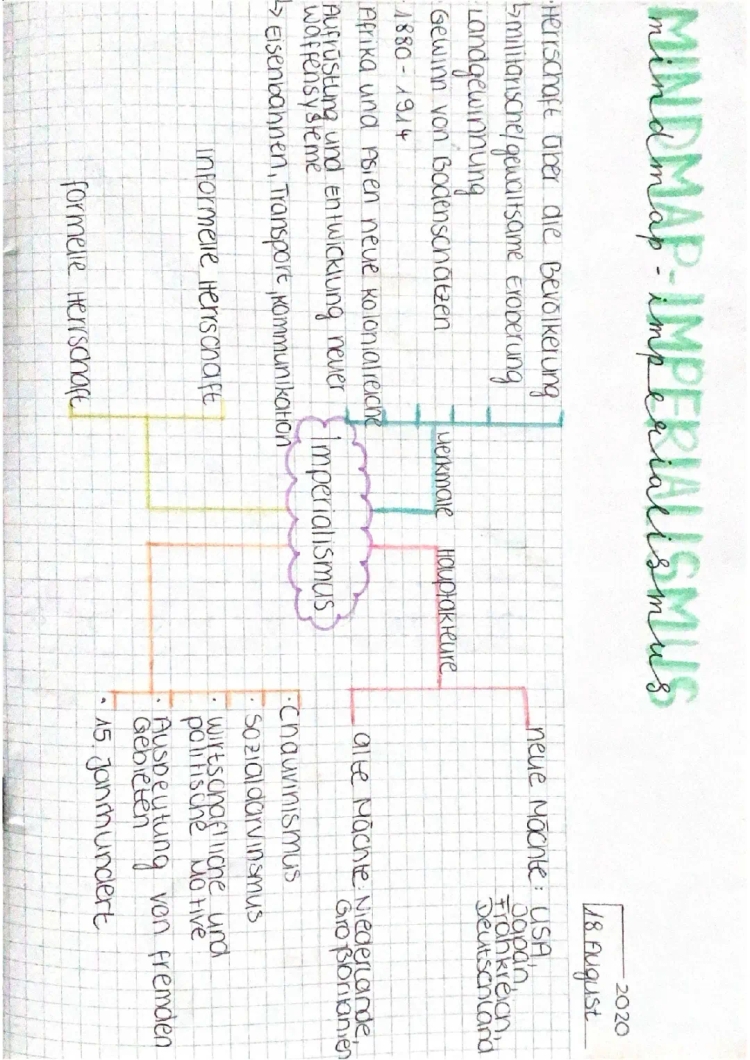 MINDMAP-IMPERIALISMUS
mindmap-imperialismus
2020
18. August
·Herrschaft über die Bevölkerung
↳militärische/gewaltsame Eroberung
·Landgewinnung
Gewinn von Bodenschätzen
1880-1914
Afrika und Asien neue Kolonialreiche
Aufrüstung und Entwicklung neuer
Waffensysteme
↳ Eisenbahnen, Transport, Kommunikation
Merkmale
Hauptakteure
neue Mächte: USA,
Japan,
Frankreich,
Deutschland
alte Mächte: Niederlande,
Großbritannien
Imperialismus
informelle Herrschaft
formelle Herrschaft
·Chauvinismus
·Sozialdarvinsmus
·wirtschafliche und
politische Motive
·Ausbeutung von fremden
Gebieten
·15. Jahrhundert